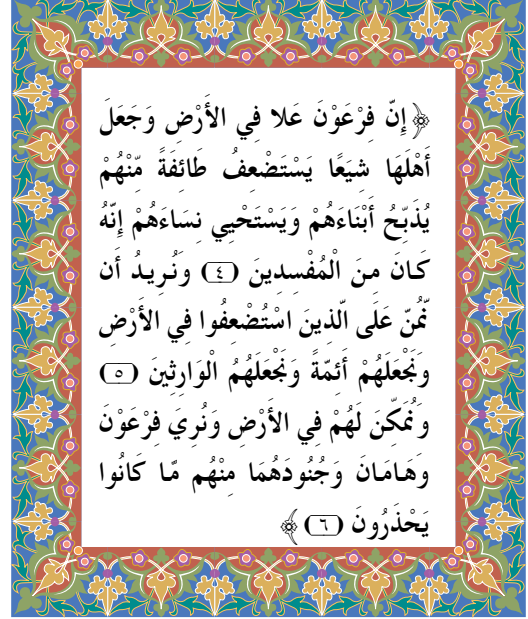 ﴿إِنّ فِرْعَوْنَ عَلا في الأَرْضِ وَجَعَلَ
أَهْلَهَا شِيَعًا يَسْتَضْعِفُ طَائِفَةً مّنْهُمْ
يُذَبّحُ أَبْنَاءَهُمْ وَيَسْتَحْيِي نِسَاءَهُمْ إِنّهُ
كَانَ مِنَ الْمُفْسِدِينَ (٤) وَنُرِيدُ أَن
نّمُنّ عَلَى الّذِينَ اسْتُضْعِفُوا فِي الأَرْضِ
وَنَجْعَلَهُمْ أَئِمّةً وَنَجْعَلَهُمُ الْوَارِثِينَ (٥)
وَنُمَكّنَ لَهُمْ فِي الأَرْضِ وَنُرِيَ فِرْعَوْنَ
وَهَامَانَ وَجُنُودَهُمَا مِنْهُم مّا كَانُوا
يَحْذَرُونَ (٦)﴾